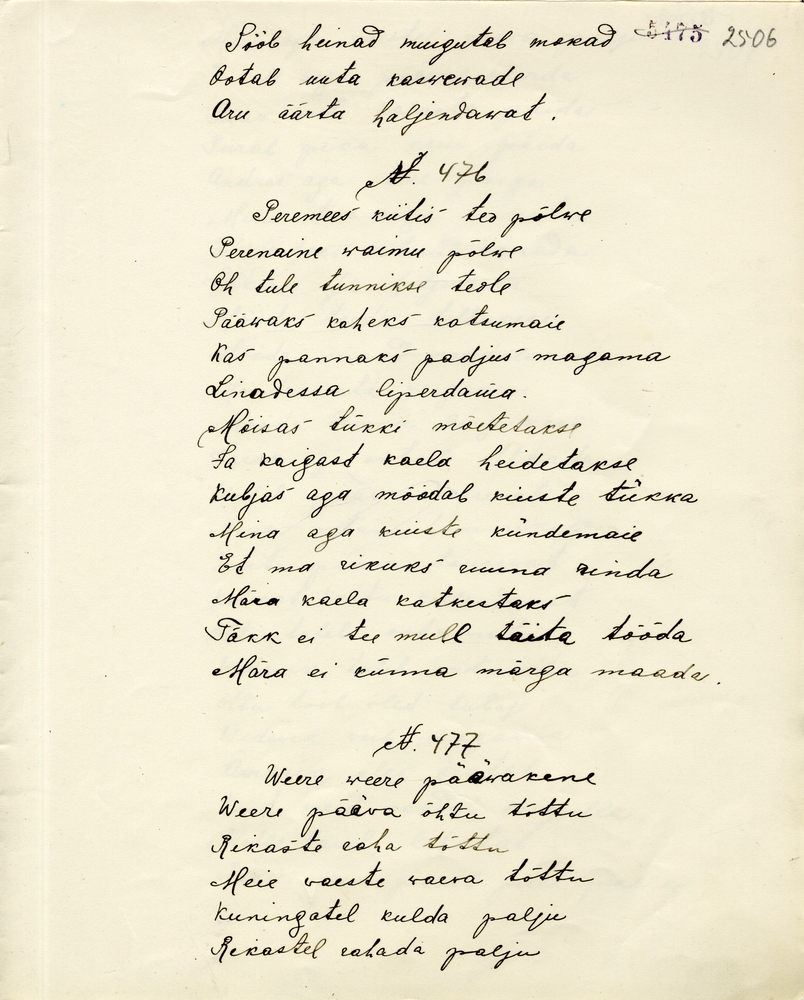 Sööb heinad muigutab mokad 5175 2506
Ootab uuta kaswewade
Aru äärta haljendawat.
N. 476
Peremees kiitis teo põlwe
Perenaine waimu põlwe
Oh tule tunnikse teole
Pääwaks kaheks katsumaie
Kas pannaks padjus magama
Linadessa liperdama.
Mõisas tükki mõetetakse
Ja kaigast kaela heidetakse
Kubjas aga mõõdab kiuste tükka
Mina aga kiuste kündemaie
Et ma rikuks ruuna rinda
Mära kaela katkestaks
Täkk ei tee mull täita tööda
Mära ei künna märga maada.
N. 477
Weere weere pääwakene
Weere pääva õhtu tõttu
Rikaste raha tõttu
Meie waeste waewa tõttu
Kuningatel kulda palju
Rikastel rahada palju